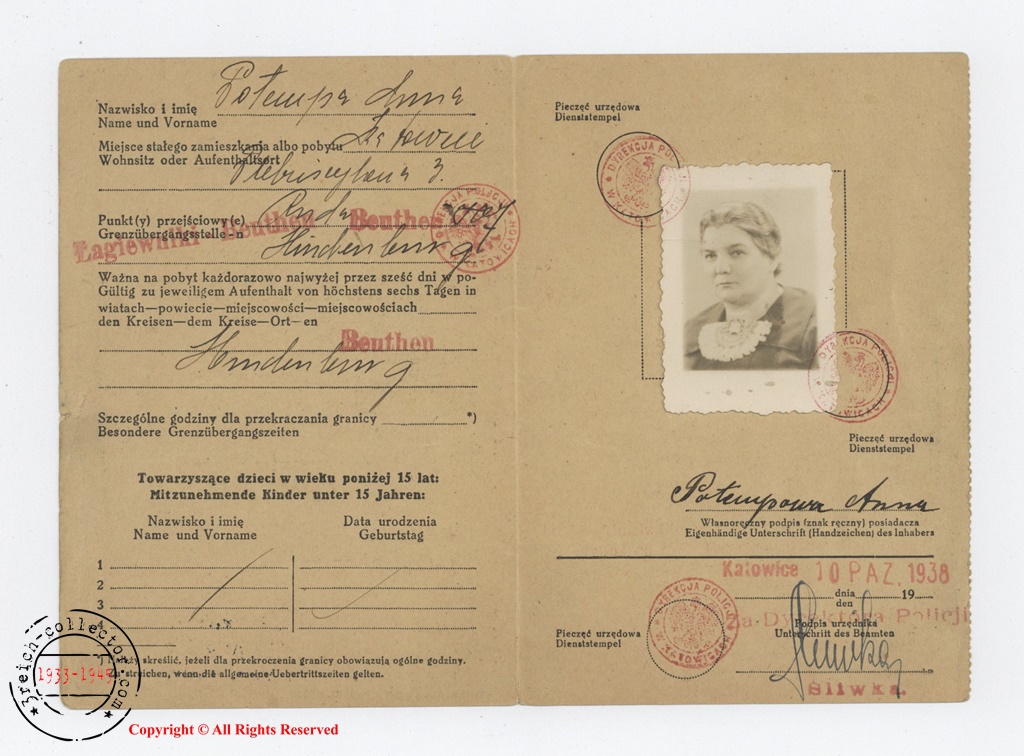 Nazwisko i imię Potempa Anna
Name und Vorname
Miejsce stałego zamieszkania albo pobytu
Wohnsitz oder Aufenthaltsort
3.
Punkt(y) przejściowy(e) Ruda
Grenzübergangsstelle-n
Łagiewniki Beuthen Beuthen
Hindenburg
DYREKCJA POLICJI W KATOWICACH
Ważna na pobyt każdorazowo najwyżej przez sześć dni w po-
Gültig zu jeweiligem Aufenthalt von höchstens sechs Tagen in
wiatach—powiecie—miejscowości—miejscowościach
den Kreisen—dem Kreise—Ort—en
Beuthen
Hindenburg
Szczególne godziny dla przekraczania granicy *)
Besondere Grenzübergangszeiten
Towarzyszące dzieci w wieku poniżej 15 lat:
Mitzunehmende Kinder unter 15 Jahren:
Nazwisko i imię Data urodzenia
Name und Vorname Geburtstag
1
2
3
4
skreślić, jeżeli dla przekroczenia granicy obowiązują ogólne godziny.
streichen, wenn die allgemeine Uebertrittszeiten gelten.
Pieczęć urzędowa
Dienststempel
DYREKCJA POLICJI W KATOWICACH
DYREKCJA POLICJI W KATOWICACH
Pieczęć urzędowa
Dienststempel
Potempowa Anna
Własnoręczny podpis (znak ręczny) posiadacza
Eigenhändige Unterschrift (Handzeichen) des Inhabers
Katowice 10 PAZ. 1938
dnia 19
den
DYREKCJA POLICJI W KATOWICACH
Za Dyrektora Policji
Pieczęć urzędowa
Dienststempel
Podpis urzędnika
Unterschrift des Beamten
Śliwka.
3reich-collector.com
1933-1945
Copyright © All Rights Reserved